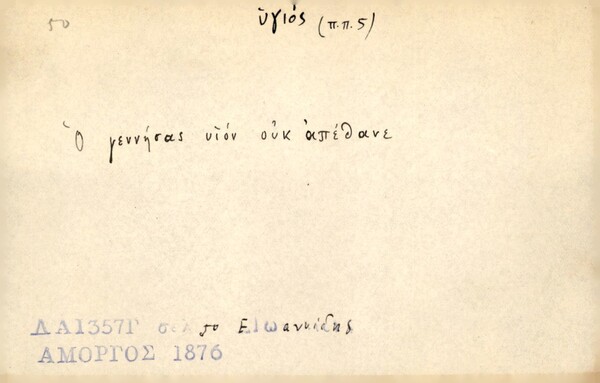 50 ὑγιός (π.π. 5)
Ὁ γεννήσας υἱόν οὐκ ἀπέθανε
ΛΑ1357Γ σελ 50 Ε. Ιωαννίδης
ΑΜΟΡΓΟΣ 1876